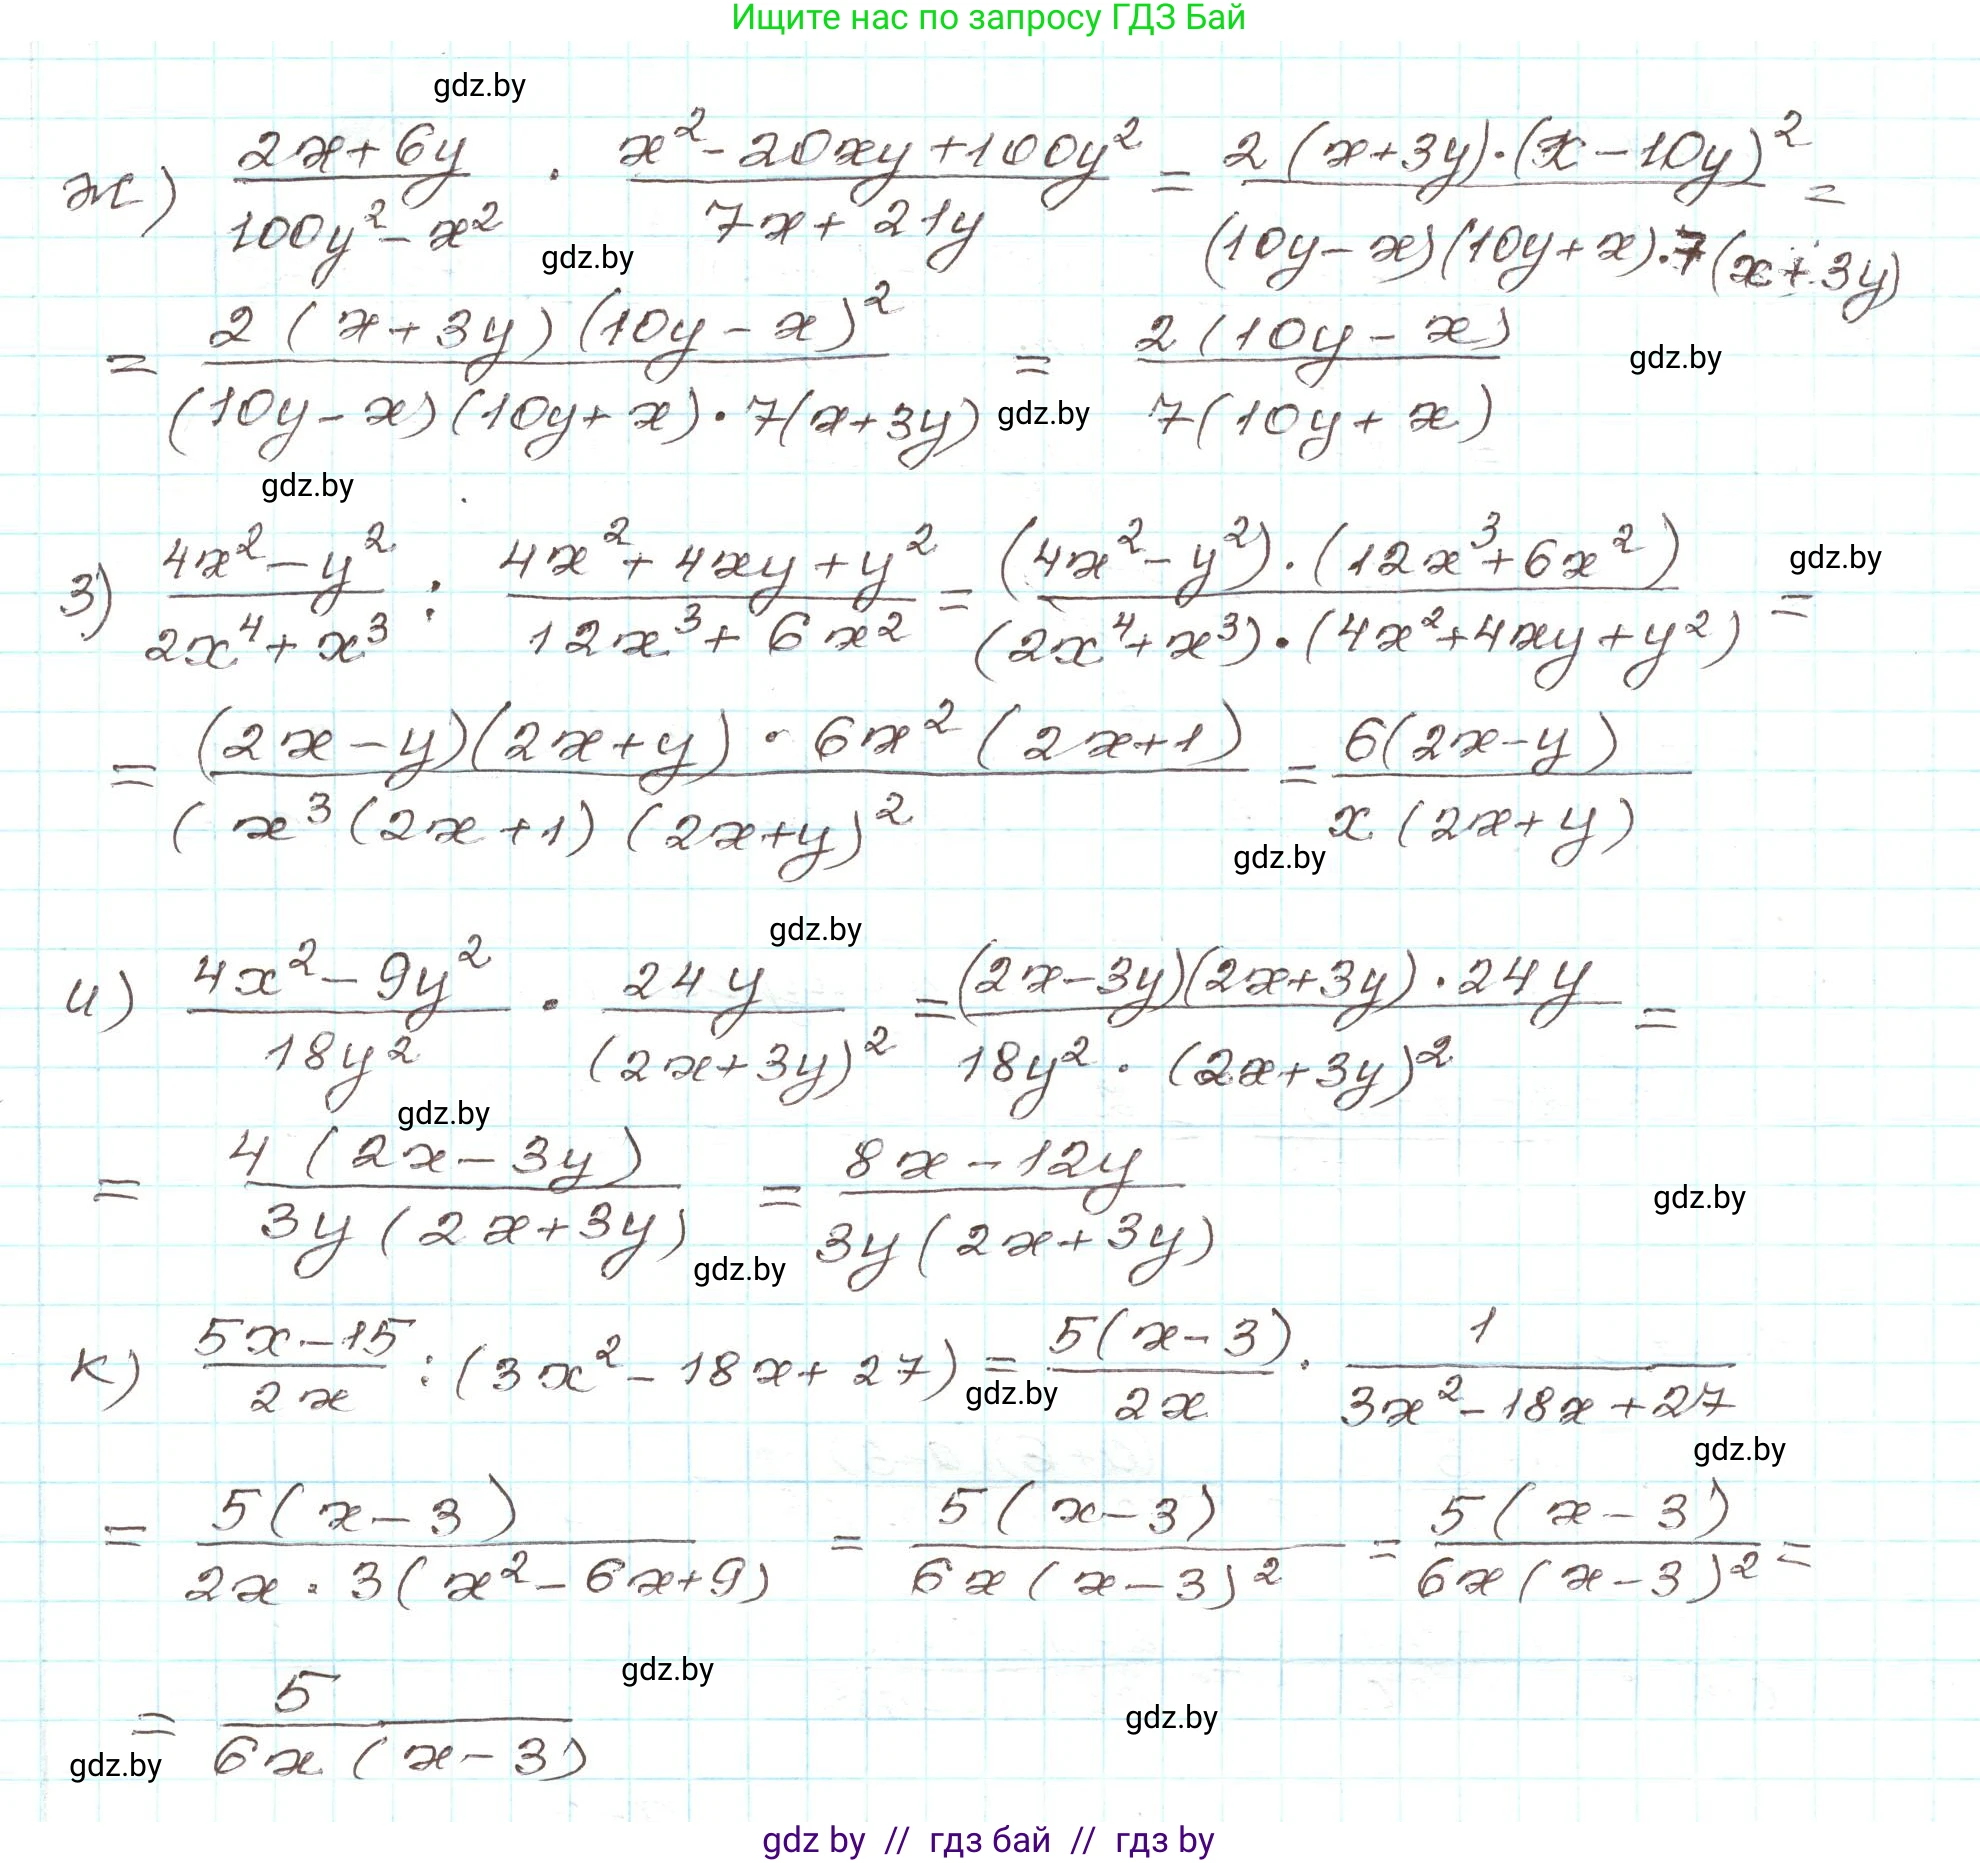 Ищите нас по запросу ГДЗ Бай
gdz.by
ж) (2x+6y)/(100y²-x²) · (x²-20xy+100y²)/(7x+21y) = (2(x+3y)·(x-10y)²)/((10y-x)(10y+x)·7(x+3y)) =
gdz.by
= (2(x+3y)(10y-x)²)/((10y-x)(10y+x)·7(x+3y)) = (2(10y-x))/(7(10y+x))
gdz.by
gdz.by
gdz.by
з) (4x²-y²)/(2x⁴+x³) : (4x²+4xy+y²)/(12x³+6x²) = ((4x²-y²)·(12x³+6x²))/((2x⁴+x³)·(4x²+4xy+y²)) =
gdz.by
= ((2x-y)(2x+y)·6x²(2x+1))/((x³(2x+1)(2x+y)²) = (6(2x-y))/(x(2x+y))
gdz.by
gdz.by
и) (4x²-9y²)/(18y²) · (24y)/((2x+3y)²) = ((2x-3y)(2x+3y)·24y)/(18y²·(2x+3y)²) =
gdz.by
= (4(2x-3y))/(3y(2x+3y)) = (8x-12y)/(3y(2x+3y))
gdz.by
gdz.by
к) (5x-15)/(2x) : (3x²-18x+27) = (5(x-3))/(2x) · 1/(3x²-18x+27)
gdz.by
gdz.by
= (5(x-3))/(2x·3(x²-6x+9)) = (5(x-3))/(6x(x-3)²) = (5(x-3))/(6x(x-3)²) =
gdz.by
= 5/(6x(x-3))
gdz.by
gdz.by
gdz by // гдз бай // гдз by